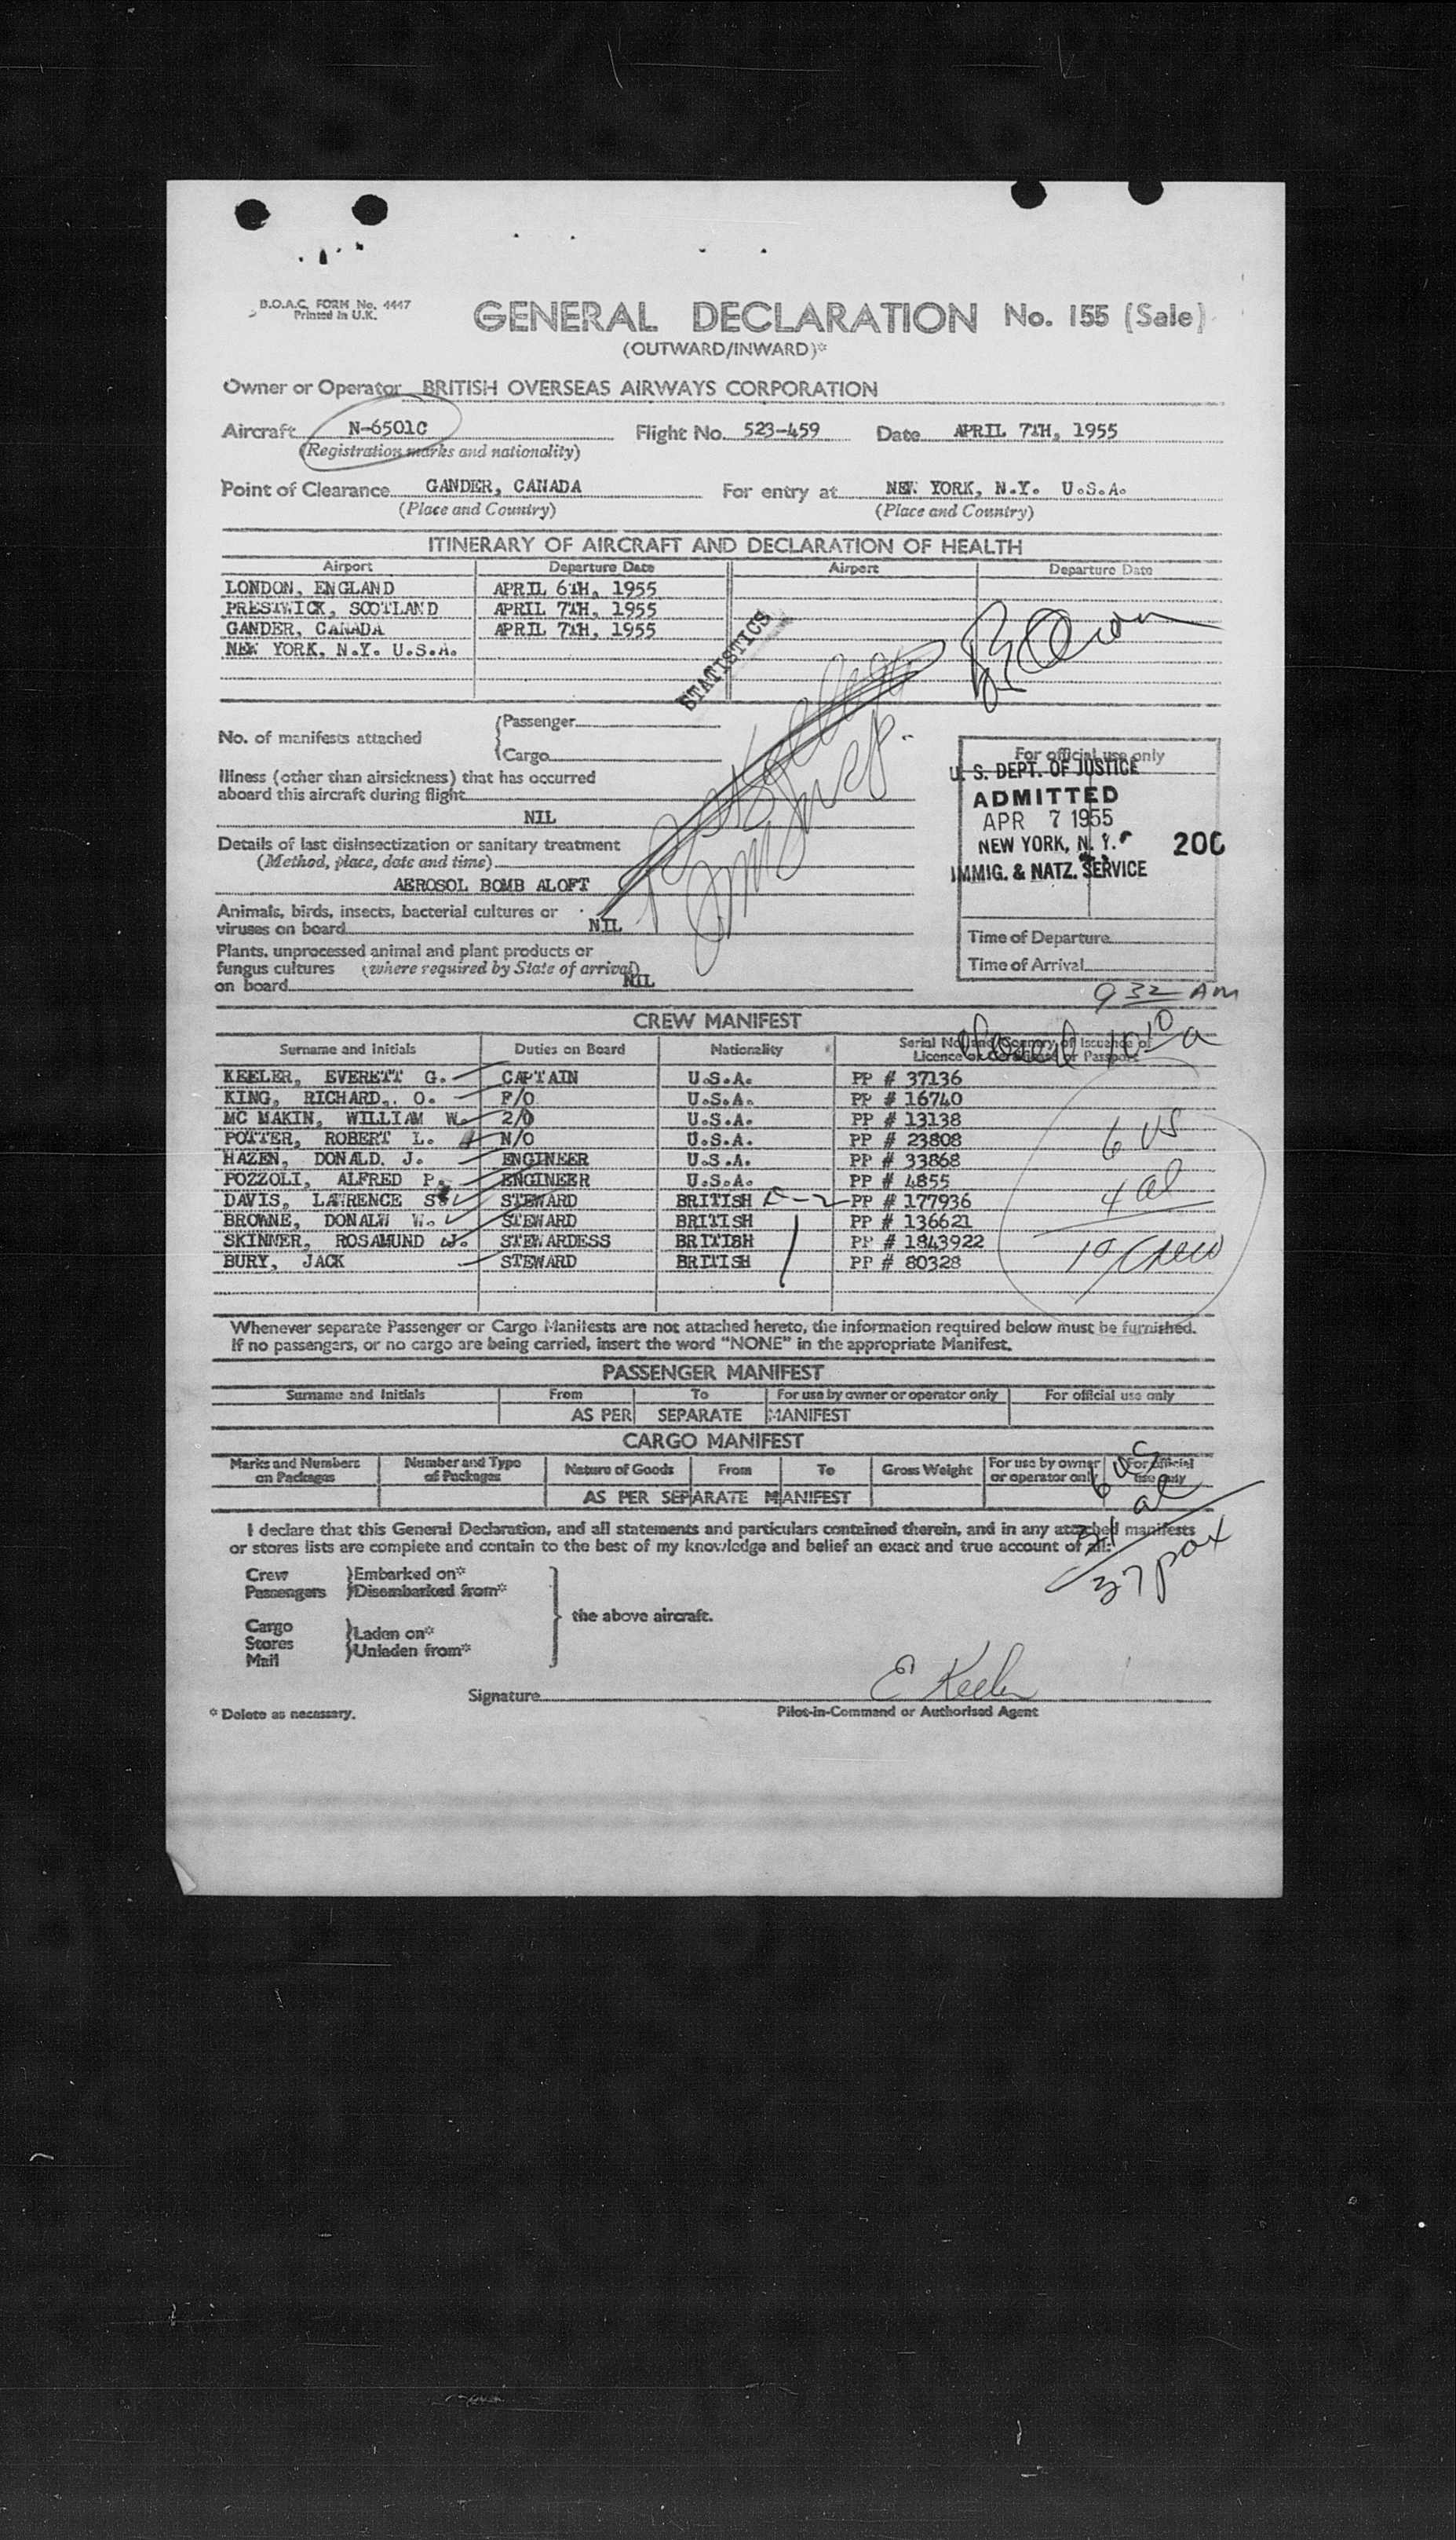 B.O.A.C. FORM No. 4447
Printed in U.K.
GENERAL DECLARATION No. 155 (Sale)
(OUTWARD/INWARD)*
Owner or Operator BRITISH OVERSEAS AIRWAYS CORPORATION
Aircraft N-6501C Flight No. 523-459 Date APRIL 7TH, 1955
(Registration marks and nationality)
Point of Clearance GANDER, CANADA For entry at NEW YORK, N.Y. U.S.A.
(Place and Country) (Place and Country)
ITINERARY OF AIRCRAFT AND DECLARATION OF HEALTH
Airport Departure Date Airport Departure Date
LONDON, ENGLAND APRIL 6TH, 1955
PRESTWICK, SCOTLAND APRIL 7TH, 1955
GANDER, CANADA APRIL 7TH, 1955
NEW YORK, N.Y. U.S.A.
STATISTICS
No. of manifests attached
Passenger
Cargo
Illness (other than airsickness) that has occurred
aboard this aircraft during flight
NIL
Details of last disinsectization or sanitary treatment
(Method, place, date and time)
AEROSOL BOMB ALOFT
Animals, birds, insects, bacterial cultures or
viruses on board NIL
Plants, unprocessed animal and plant products or
fungus cultures (where required by State of arrival)
on board NIL
For official use only
U. S. DEPT. OF JUSTICE
ADMITTED
APR 7 1955
NEW YORK, N. Y. 200
IMMIG. & NATZ. SERVICE
Time of Departure
Time of Arrival
9 32 AM
10 10 a
CREW MANIFEST
Surname and Initials Duties on Board Nationality Serial No. and Country of Issuance of
Licence or Certificate or Passport
KEELER, EVERETT G. CAPTAIN U.S.A. PP # 37136
KING, RICHARD,. O. F/O U.S.A. PP # 16740
MC MAKIN, WILLIAM W. 2/O U.S.A. PP # 13138
POTTER, ROBERT L. N/O U.S.A. PP # 23808
HAZEN, DONALD. J. ENGINEER U.S.A. PP # 33868
POZZOLI, ALFRED P. ENGINEER U.S.A. PP # 4855
DAVIS, LAWRENCE S. STEWARD BRITISH PP # 177936
BROWNE, DONALW W. STEWARD BRITISH PP # 136621
SKINNER, ROSAMUND W. STEWARDESS BRITISH PP # 1843922
BURY, JACK STEWARD BRITISH PP # 80328
6 US
4 al
10 Crew
Whenever separate Passenger or Cargo Manifests are not attached hereto, the information required below must be furnished.
If no passengers, or no cargo are being carried, insert the word "NONE" in the appropriate Manifest.
PASSENGER MANIFEST
Surname and Initials From To For use by owner or operator only For official use only
AS PER SEPARATE MANIFEST
CARGO MANIFEST
Marks and Numbers on Packages Number and Type of Packages Nature of Goods From To Gross Weight For use by owner or operator only For official use only
AS PER SEPARATE MANIFEST
6 US
31 al
37 pax
I declare that this General Declaration, and all statements and particulars contained therein, and in any attached manifests
or stores lists are complete and contain to the best of my knowledge and belief an exact and true account of all:
Crew Embarked on*
Passengers Disembarked from*
the above aircraft.
Cargo Laden on*
Stores Unladen from*
Mail
Signature E Keeler
* Delete as necessary. Pilot-in-Command or Authorised Agent